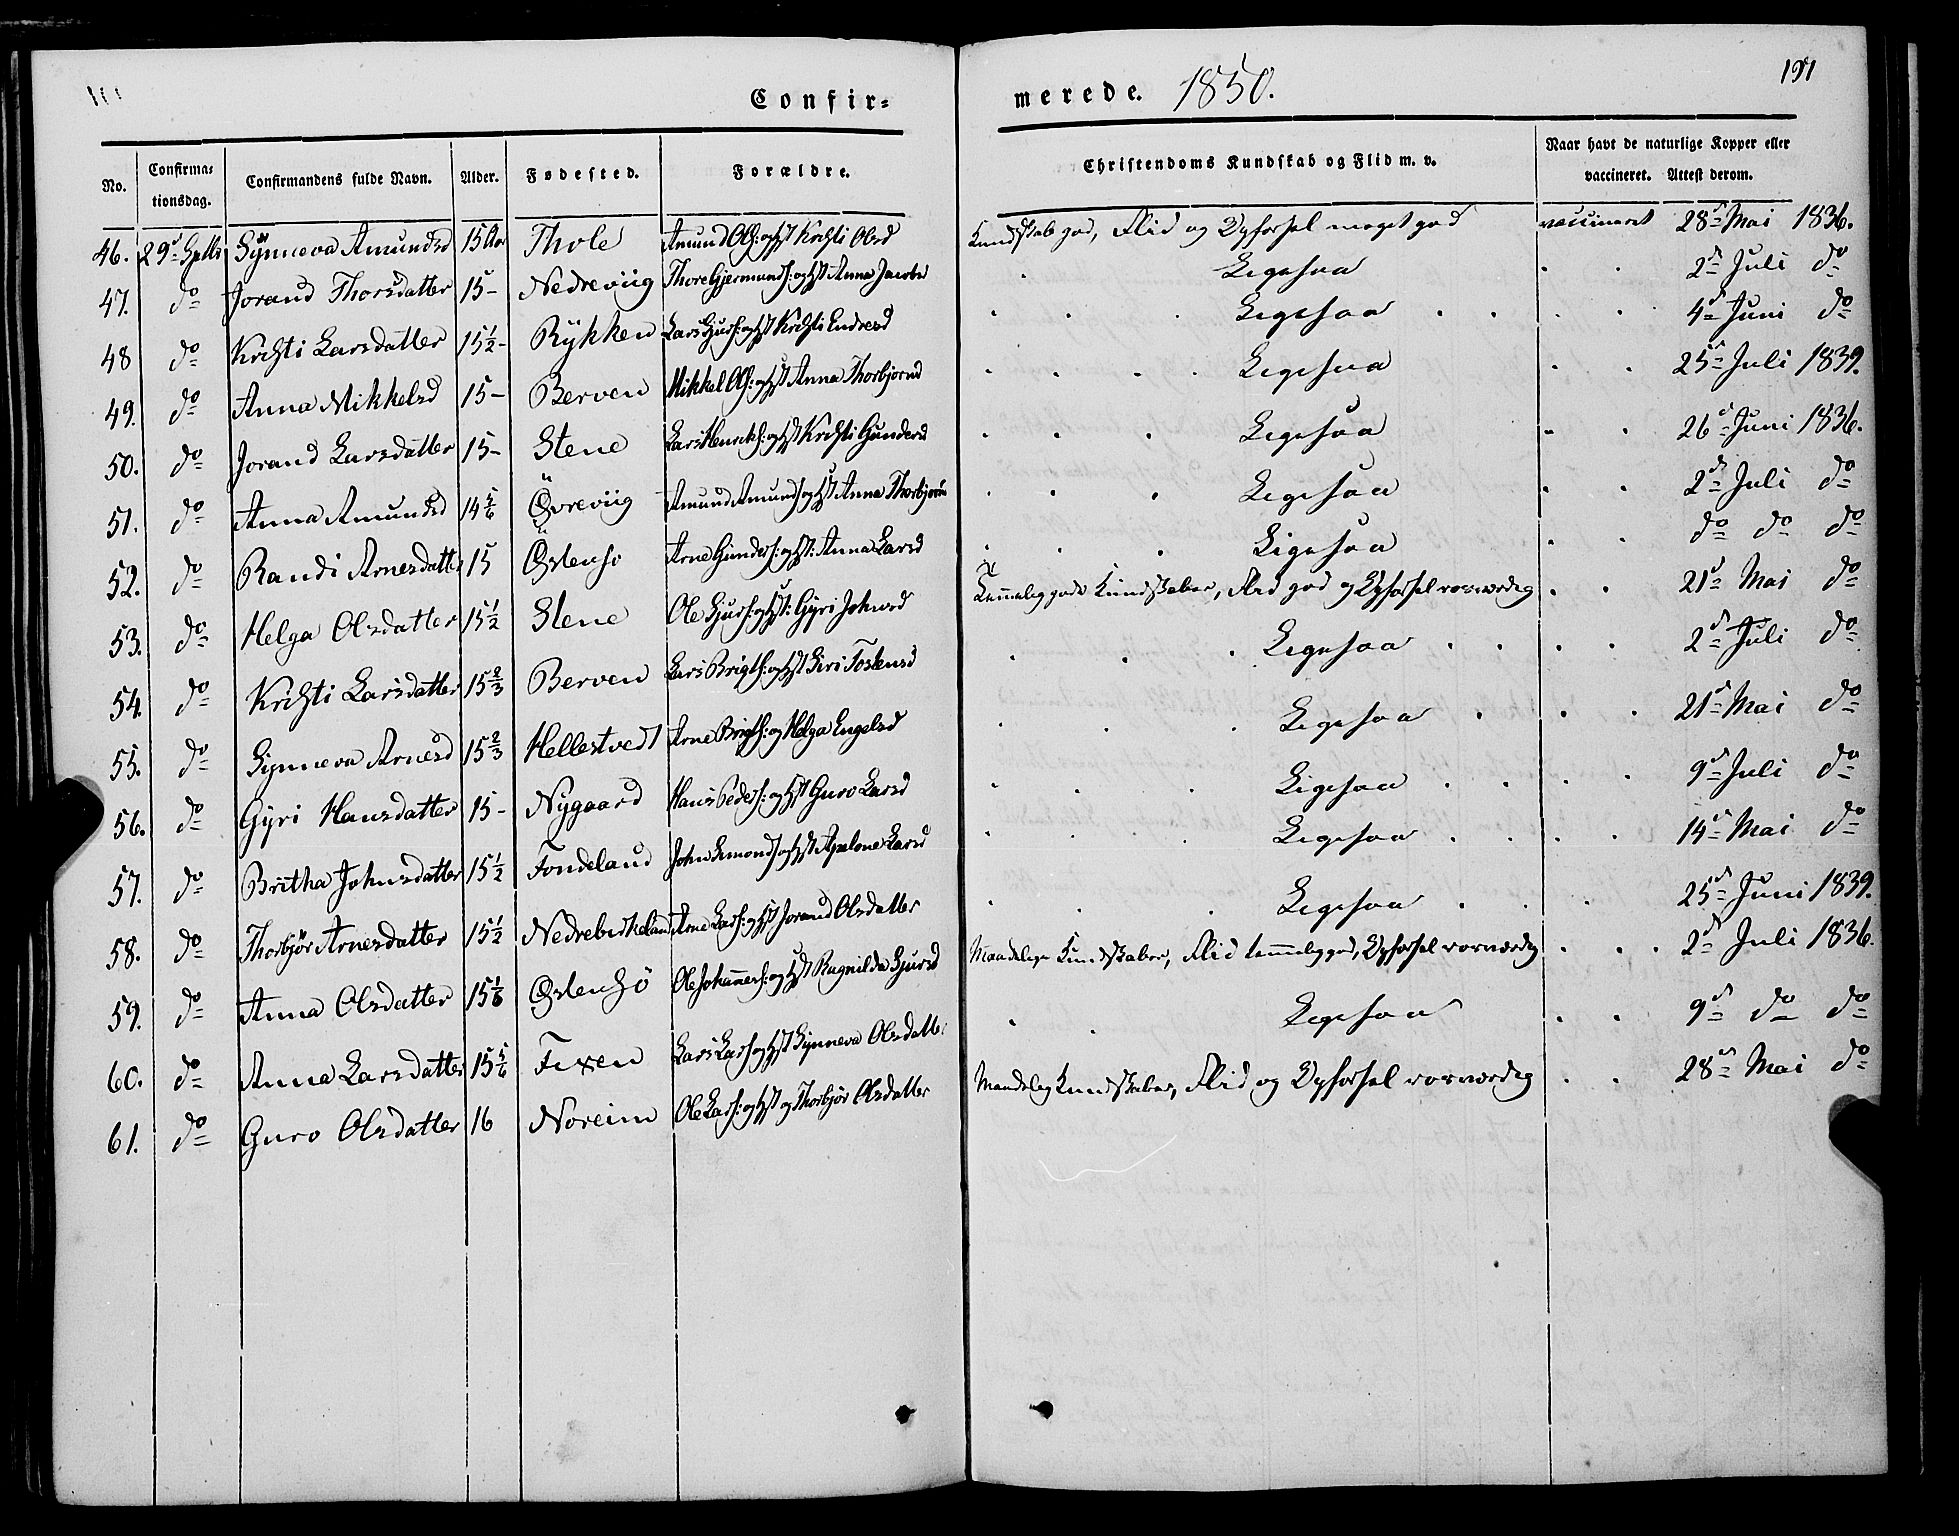 Confir= merede. 1850. 191
No. Confirma= tionsdag. Confirmandens fulde Navn. Alder. Fødested. Forældre. Christendoms Kundskab og Flid m. v. Naar havt de naturlige Kopper eller vaccineret. Attest derom.
46. 29 Synneva Amundsd 15 Aar Thole Amund Ols: og Hst Kristi Olsd Kundskab god, Flid og Opførsel meget god vaccineret 28d Mai 1836.
47. do Jorand Thorsdatter 15- Nedreviig Thore Gjermunds: og Hst Anna Jacobsd Ligesaa 2d Juli do
48 do Kristi Larsdatter 15½- Rykken Lars Sjurs: og Hst Kristi Endresd Ligesaa 4d Juni do
49. do Anna Mikkelsd 15- Berven Mikkel Ols: og Hst Anna Thorbjornd Ligesaa 25d Juli 1839.
50. do Jorand Larsdatter 15- Stene Lars Henriks: og Hst Kristi Gundersd Ligesaa 26d Juni 1836.
51. do Anna Amundsd 14 5/6 Øvreviig Amund Amunds og Hst Anna Thorbjorn Ligesaa 2d Juli do
52. do Randi Arnesdatter 15 Østensø Arne Gunders: og Hst: Anna Larsd Ligesaa do do do
53. do Helga Olsdatter 15½ Stene Ole Sjurs: og Hst: Gyri Johnsd Temmelig gode Kundskaber, Flid god og Opførsel rosværdig 21d Mai do
54. do Kristi Larsdatter 15⅔ Berven Lars Brigts: og Hst Siri Tostensd Ligesaa 2d Juli do
55. do Synneva Arnesd 15⅔ Hellestvedt Arne Brigts: og Helga Engelsd Ligesaa 21d Mai do
56. do Gyri Hansdatter 15- Nygaard Hans Peders: og Hst Guro Larsd Ligesaa 9d Juli do
57. do Britha Johnsdatter 15½ Tondeland John Simonds og Hst Apelone Larsd Ligesaa 14d Mai do
58. do Thorbjør Arnesdatter 15½ Nedrebirkeland Arne Lars: og Hst Jorand Olsdatter Ligesaa 25d Juni 1839.
59. do Anna Olsdatter 15 1/6 Østensø Ole Johannes: og Hst Ragnilda Sjursd Maadelige Kundskaber, Flid temmelig god, Opførsel rosværdig 2d Juli 1836.
60. do Anna Larsdatter 15 5/6 Fixen Lars Lars og Hst Synneva Olsdatter Ligesaa 9d do do
61. do Guro Olsdatter 16 Noreim Ole Lars: og Hst og Thorbjør Olsdatter Maadelig Kundskaber, Flid og Opførsel rosværdig 28d Mai do